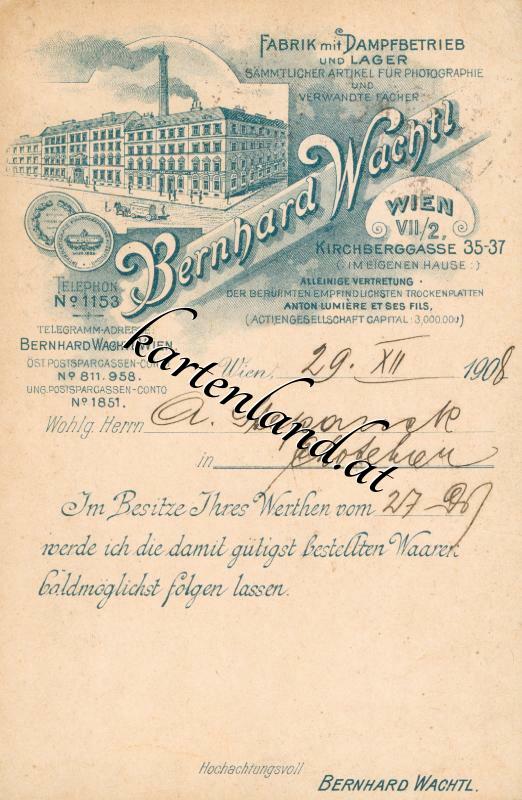 FABRIK mit DAMPFBETRIEB
UND LAGER
SÄMMTLICHER ARTIKEL FÜR PHOTOGRAPHIE
UND
VERWANDTE FÄCHER
Bernhard Wachtl
WIEN
VII/2,
KIRCHBERGGASSE 35-37
(: IM EIGENEN HAUSE :)
ALLEINIGE VERTRETUNG
DER BERÜHMTEN EMPFINDLICHSTEN TROCKENPLATTEN
ANTON LUMIÈRE ET SES FILS,
(ACTIENGESELLSCHAFT CAPITAL: 3,000.000)
TELEPHON
No 1153
TELEGRAMM-ADRESSE:
BERNHARD WACHTL WIEN
ÖST. POSTSPARCASSEN-CONTO
No 811.958.
UNG. POSTSPARGASSEN-CONTO
No 1851.
Wien, 29. XII 1908
Wohlg. Herrn A.
in
Im Besitze Ihres Werthen vom 27
werde ich die damit gütigst bestellten Waaren
baldmöglichst folgen lassen.
Hochachtungsvoll
BERNHARD WACHTL.
kartenland.at